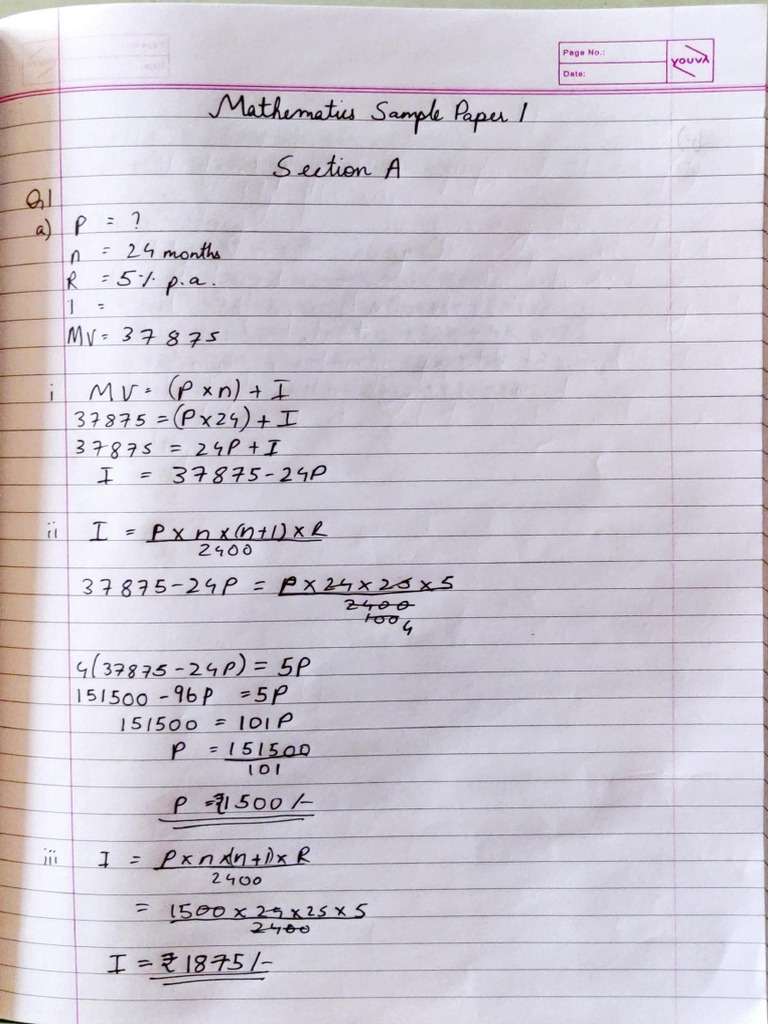 Page No.:
Date:
YOUVA
Mathematics Sample Paper 1
Section A
Q1
a) P = ?
n = 24 months
R = 5% p.a.
I =
MV = 37875
i MV = (P x n) + I
37875 = (P x 24) + I
37875 = 24P + I
I = 37875 - 24P
ii I = P x n x (n+1) x R
2400
37875 - 24P = P x 24 x 25 x 5
2400
100 4
4(37875 - 24P) = 5P
151500 - 96P = 5P
151500 = 101P
P = 151500
101
P = ₹1500/-
iii I = P x n x (n+1) x R
2400
= 1500 x 24 x 25 x 5
2400
I = ₹1875/-